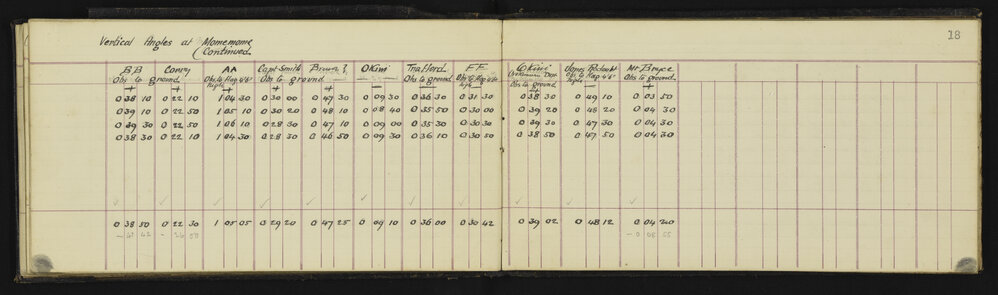 18
Vertical Angles at Momemome
(Continued
BB Conry AA Capt Smith Brown ? OKiwi Trafford FF OKiwi Jones Redoubt Mt Bruce
Obs to ground Obs to Flag Obs to ground Obs to ground Obs to Flag Obs to ground Obs to Flag Obs to ground
0 38 10 0 22 10 1 04 30 0 30 00 0 47 30 0 09 30 0 36 30 0 31 30 0 38 30 0 49 10 0 03 50
0 39 10 0 22 50 1 05 10 0 30 20 0 48 10 0 08 40 0 35 50 0 30 00 0 39 20 0 48 20 0 04 30
0 39 30 0 22 50 1 06 10 0 28 30 0 47 10 0 09 00 0 35 30 0 30 30 0 39 30 0 47 30 0 04 30
0 38 30 0 22 10 1 04 30 0 28 30 0 46 50 0 09 30 0 36 10 0 30 50 0 38 50 0 47 50 0 04 30
0 38 50 0 22 30 1 05 05 0 29 20 0 47 25 0 09 10 0 36 00 0 30 42 0 39 02 0 48 12 0 04 20